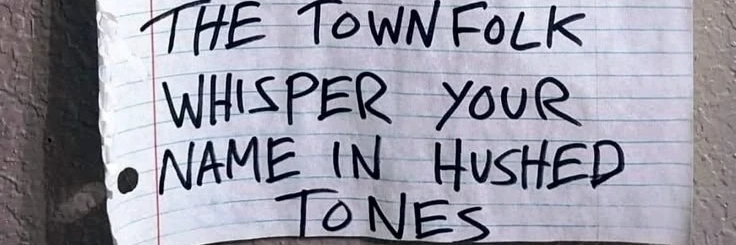 THE TOWNFOLK
WHISPER YOUR
NAME IN HUSHED
TONES